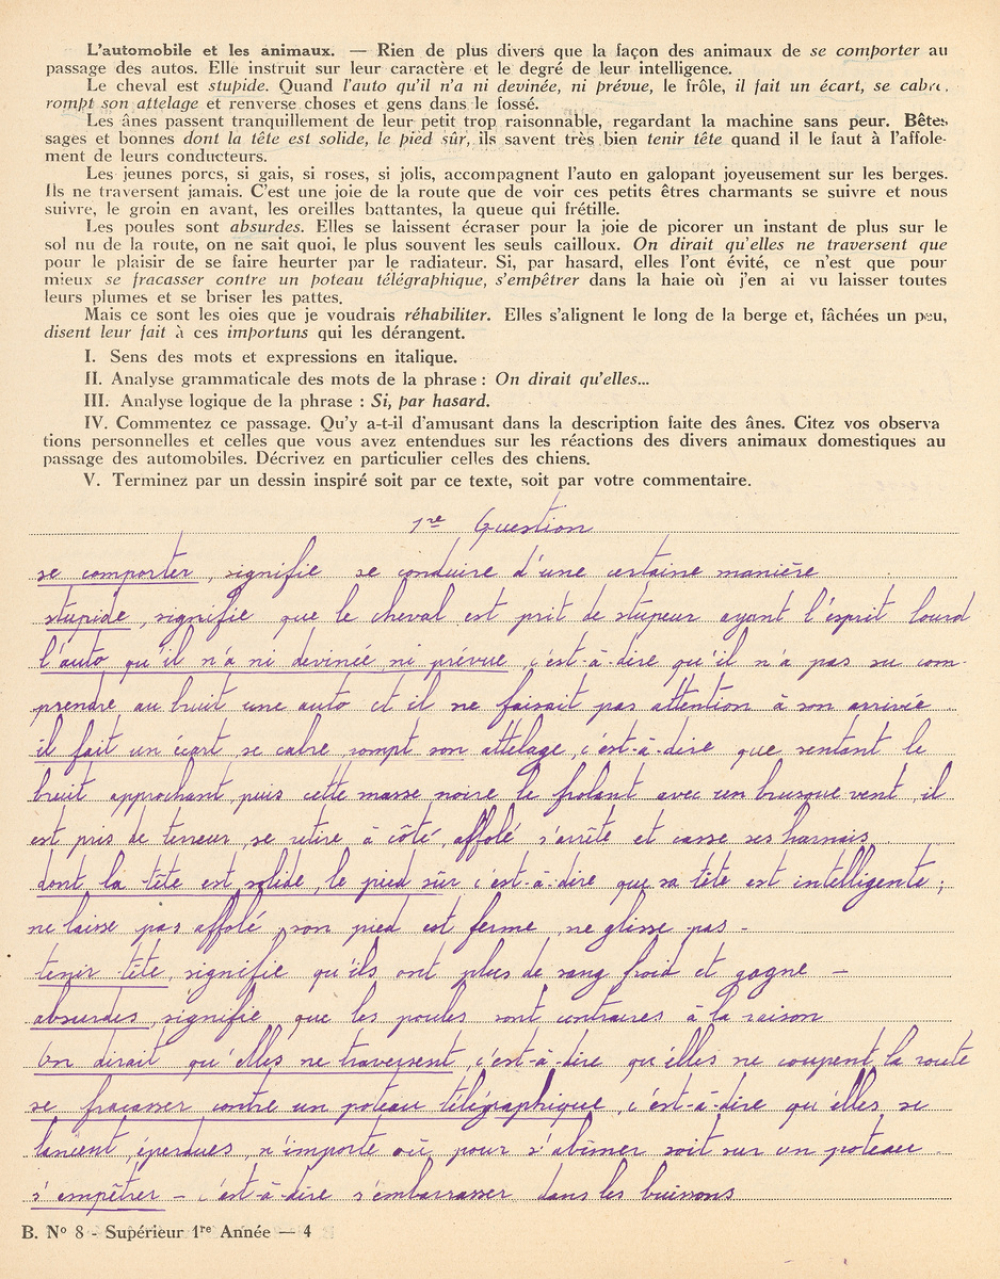 L'automobile et les animaux. — Rien de plus divers que la façon des animaux de se comporter au
passage des autos. Elle instruit sur leur caractère et le degré de leur intelligence.
Le cheval est stupide. Quand l'auto qu'il n'a ni devinée, ni prévue, le frôle, il fait un écart, se cabre,
rompt son attelage et renverse choses et gens dans le fossé.
Les ânes passent tranquillement de leur petit trop raisonnable, regardant la machine sans peur. Bêtes
sages et bonnes dont la tête est solide, le pied sûr, ils savent très bien tenir tête quand il le faut à l'affole-
ment de leurs conducteurs.
Les jeunes porcs, si gais, si roses, si jolis, accompagnent l'auto en galopant joyeusement sur les berges.
Ils ne traversent jamais. C'est une joie de la route que de voir ces petits êtres charmants se suivre et nous
suivre, le groin en avant, les oreilles battantes, la queue qui frétille.
Les poules sont absurdes. Elles se laissent écraser pour la joie de picorer un instant de plus sur le
sol nu de la route, on ne sait quoi, le plus souvent les seuls cailloux. On dirait qu'elles ne traversent que
pour le plaisir de se faire heurter par le radiateur. Si, par hasard, elles l'ont évité, ce n'est que pour
mieux se fracasser contre un poteau télégraphique, s'empêtrer dans la haie où j'en ai vu laisser toutes
leurs plumes et se briser les pattes.
Mais ce sont les oies que je voudrais réhabiliter. Elles s'alignent le long de la berge et, fâchées un peu,
disent leur fait à ces importuns qui les dérangent.
I. Sens des mots et expressions en italique.
II. Analyse grammaticale des mots de la phrase : On dirait qu'elles...
III. Analyse logique de la phrase : Si, par hasard.
IV. Commentez ce passage. Qu'y a-t-il d'amusant dans la description faite des ânes. Citez vos observa
tions personnelles et celles que vous avez entendues sur les réactions des divers animaux domestiques au
passage des automobiles. Décrivez en particulier celles des chiens.
V. Terminez par un dessin inspiré soit par ce texte, soit par votre commentaire.
1re Question
se comporter, signifie se conduire d'une certaine manière
stupide, signifie que le cheval est prit de stupeur ayant l'esprit lourd
l'auto qu'il n'a ni devinée ni prévue, c'est-à-dire qu'il n'a pas su com-
prendre au bruit une auto et il ne faisait pas attention à son arrivée.
il fait un écart se cabre rompt son attelage, c'est-à-dire que sentant le
bruit approchant, puis cette masse noire le frolant avec un brusque vent, il
est pris de terreur, se retire à côté, affolé s'arrête et casse ses harnais
dont la tête est solide, le pied sûr c'est-à-dire que sa tête est intelligente;
ne laisse pas affolé, son pied est ferme, ne glisse pas -
tenir tête, signifie qu'ils ont plus de sang froid et gagne —
absurdes, signifie, que les poules sont contraires à la raison
On dirait qu'elles ne traversent, c'est-à-dire qu'elles ne coupent la route
se fracasser contre un poteau télégraphique, c'est-à-dire qu'elles se
lancent, éperdues, n'importe où pour s'abîmer soit sur un poteau
s'empêtrer - c'est-à-dire s'embarrasser dans les buissons
B. No 8 - Supérieur 1re Année — 4